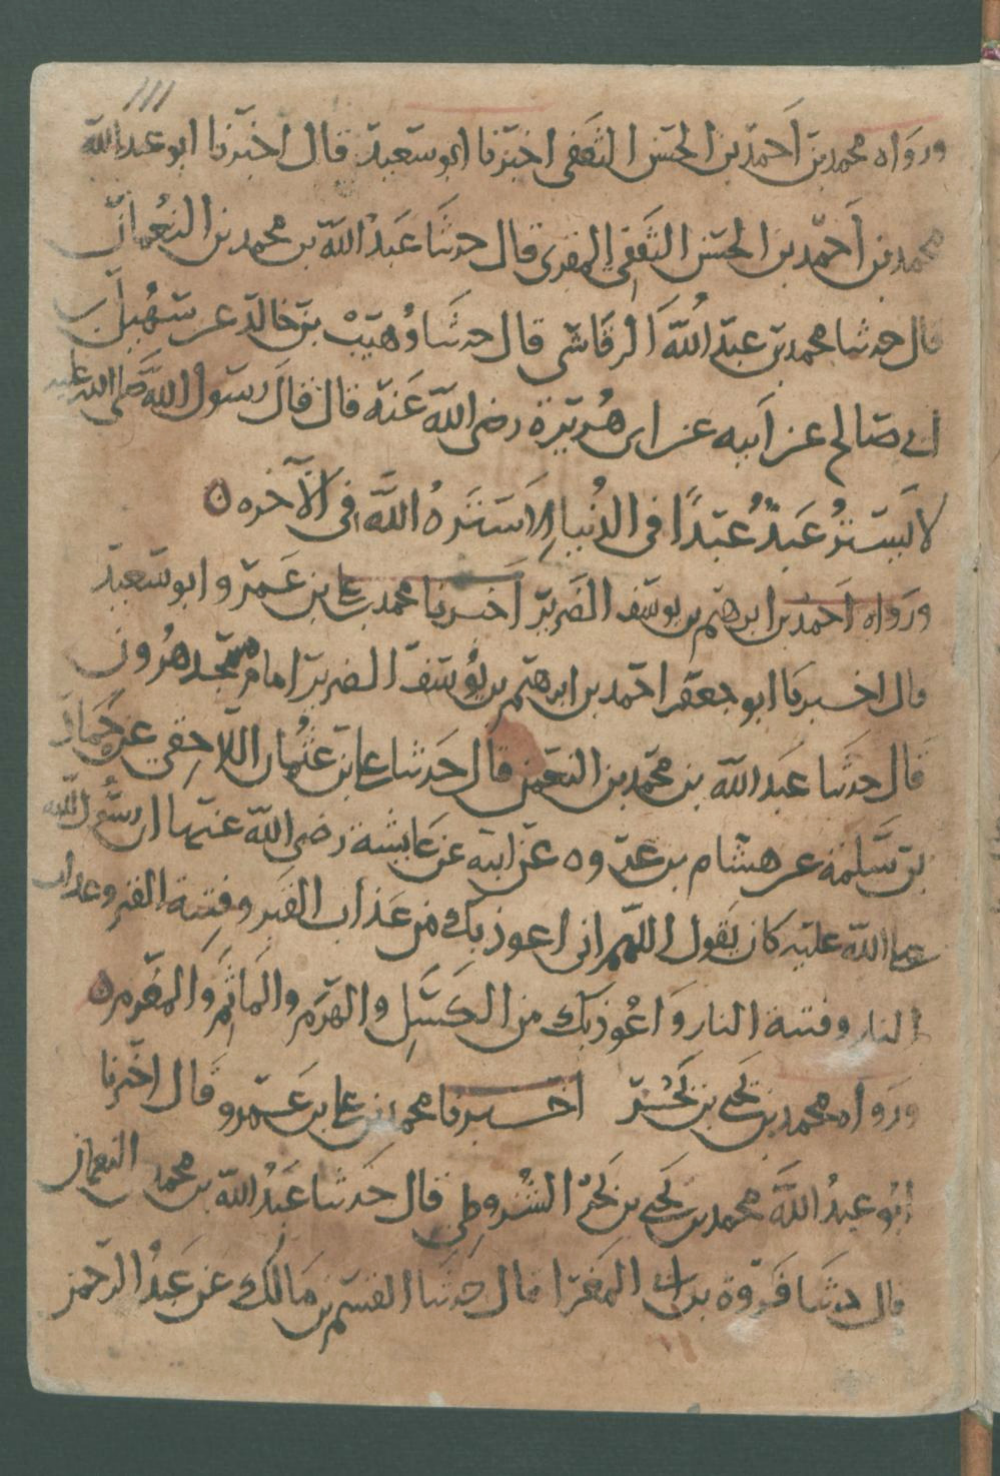 ١١١
ورواه محمد بن أحمد بن الحسن الثقفي اخبرنا ابو سعيد قال اخبرنا ابو عبد الله
محمد بن أحمد بن الحسن الثقفي المقري قال حدثنا عبد الله بن محمد بن النعمان
قال حدثنا محمد بن عبد الله الرقاشي قال حدثنا وهيب بن خالد عن سهيل بن
ابي صالح عن أبيه عن ابي هريرة رضي الله عنه قال قال رسول الله صلى الله عليه
لا يستر عبد عبدا في الدنيا إلا ستره الله في الآخره ن
ورواه أحمد بن ابرهيم بن يوسف الضرير أخبرنا محمد بن علي بن عمرو وابو سعيد
قال اخبرنا ابو جعفر احمد بن ابرهيم بن يوسف الضرير امام مسجد هرون
قال حدثنا عبد الله بن محمد بن النعمن قال حدثنا علي بن عثمان اللاحقي عن حماد
بن سلمة عن هشام بن عروه عن ابيه عن عايشة رضي الله عنها ان رسول الله
صلى الله عليه كان يقول اللهم اني اعوذ بك من عذاب القبر وفتنة القبر وعذاب
النار وفتنة النار وأعوذ بك من الكسل والهرم والمأثم والمغرم ن
ورواه محمد بن يحيى بن اخبرنا محمد بن علي بن عمرو قال اخبرنا
أبو عبد الله محمد بن يحيى بن الشروطي قال حدثنا عبد الله بن محمد النعمان
قال حدثنا فروة بن ابي المغرا قال حدثنا القسم بن مالك عن عبد الرحمن